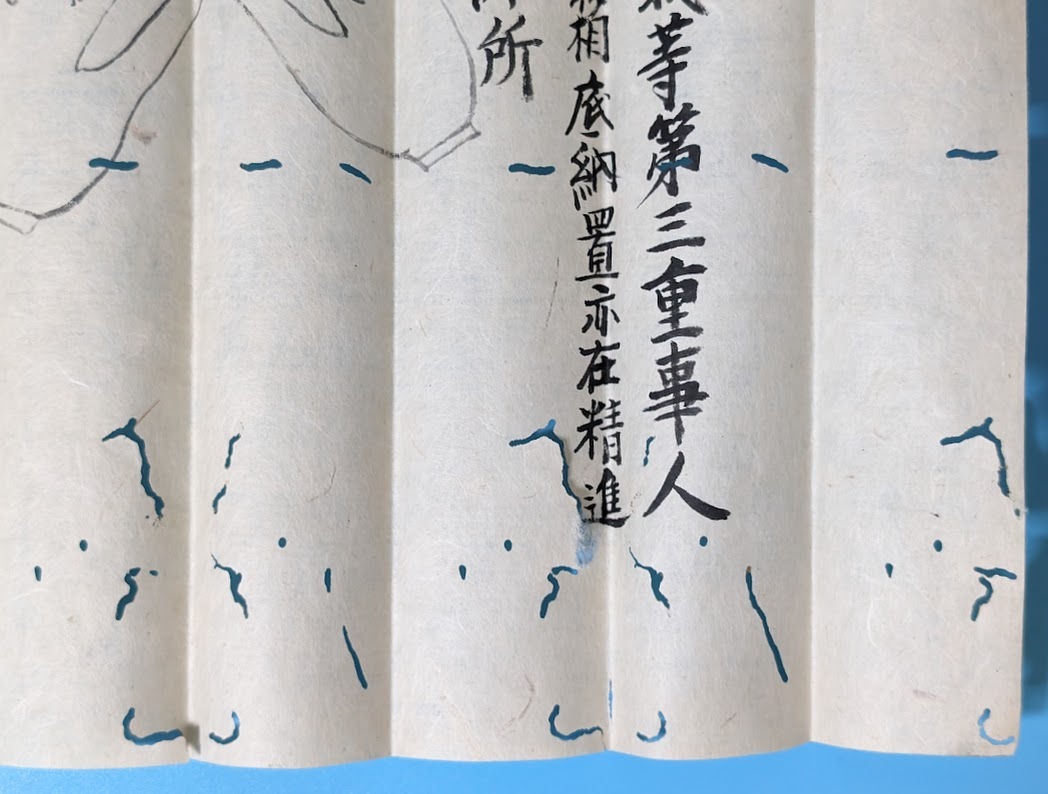 等第三重事人
相底納置亦在精進
所